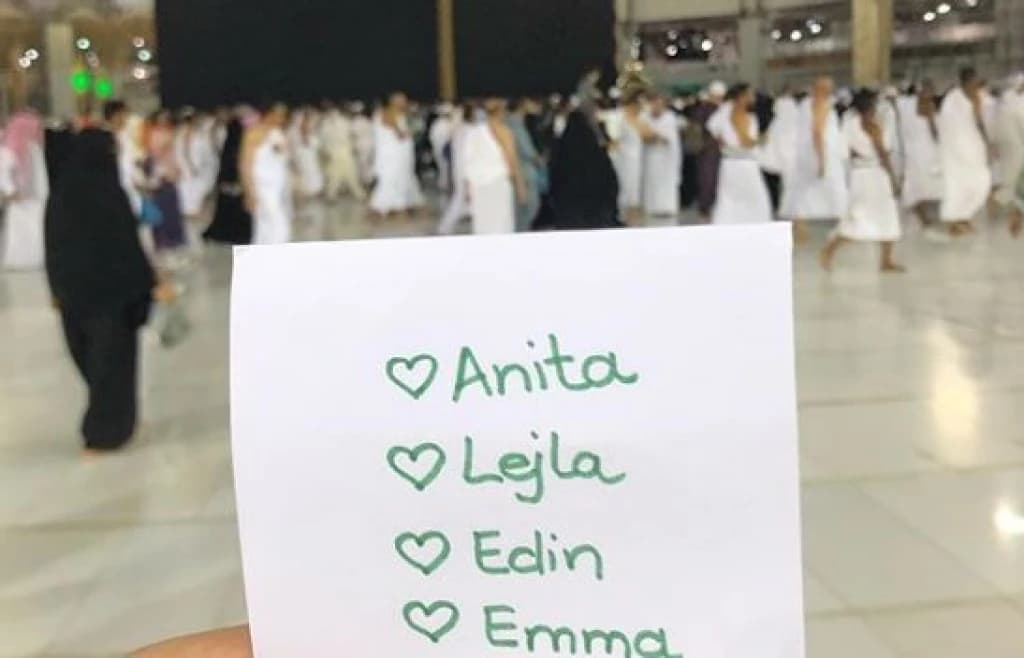 ♡ Anita
♡ Lejla
♡ Edin
♡ Emma